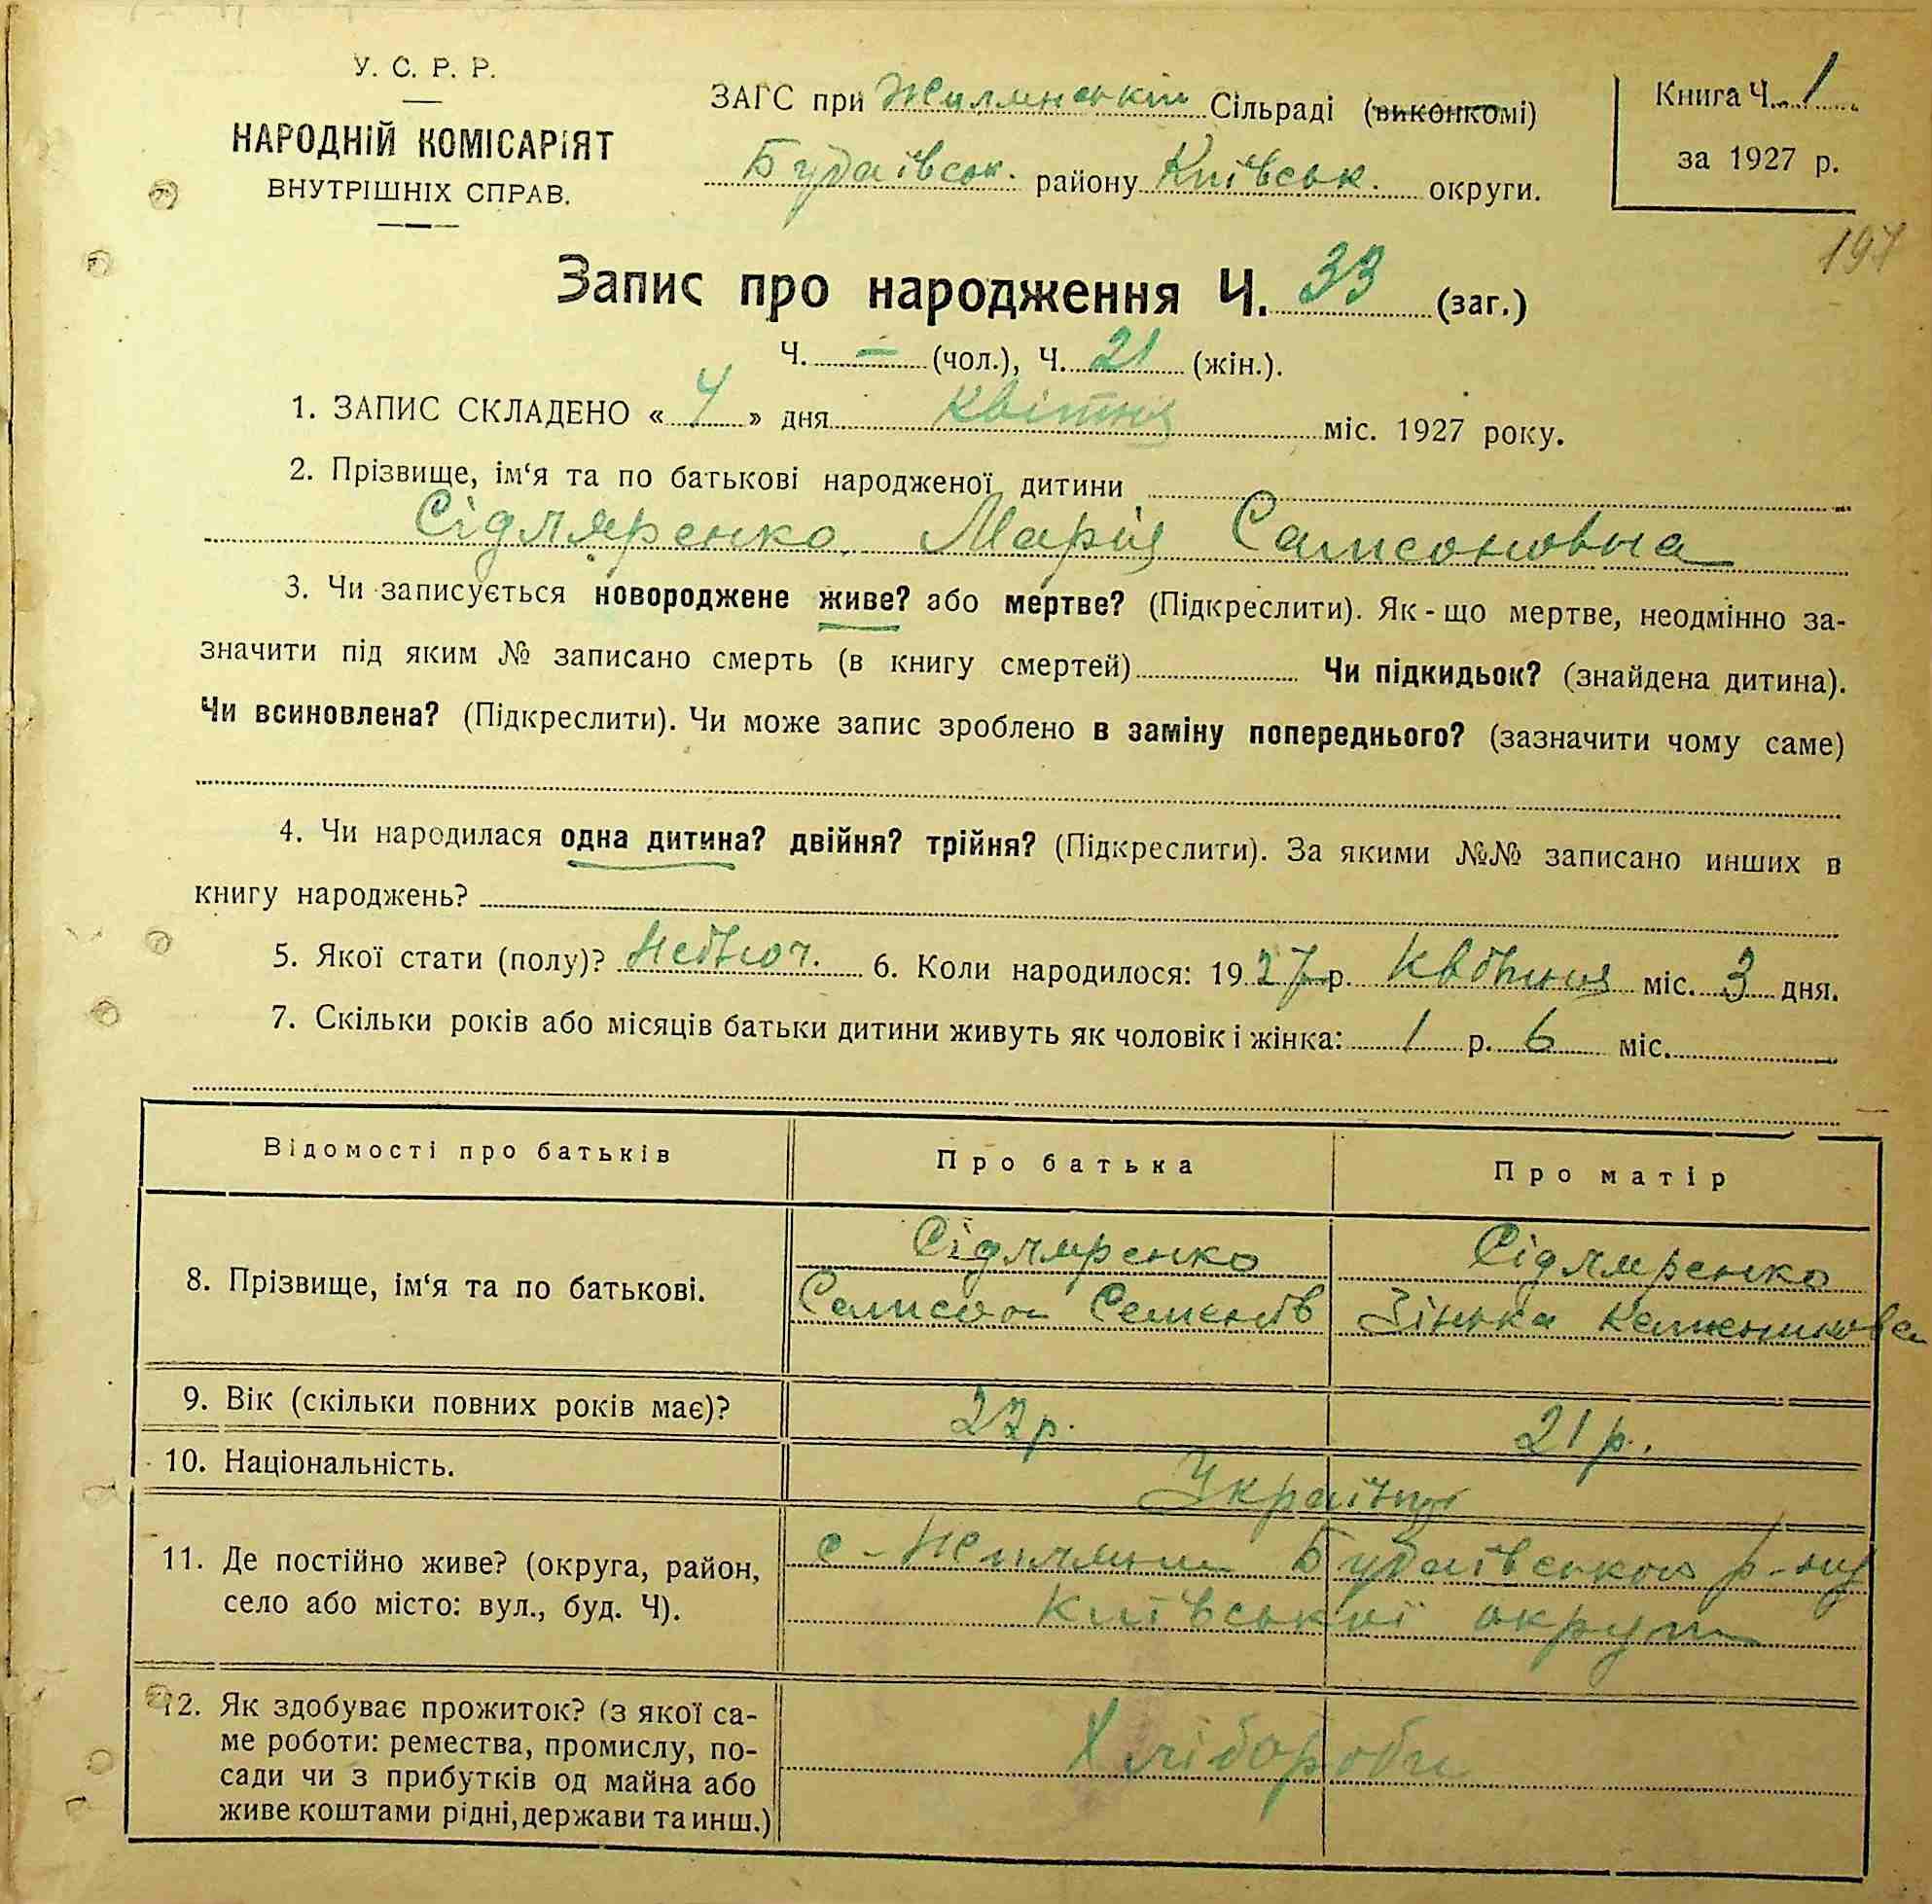 У. С. Р. Р.
НАРОДНІЙ КОМІСАРІЯТ
ВНУТРІШНІХ СПРАВ.
ЗАГС при Жилянській Сільраді (виконкомі)
Будаївськ. району Київськ. округи.
Книга Ч. 1
за 1927 р.
197
Запис про народження Ч. 33 (заг.)
Ч. — (чол.), Ч. 21 (жін.).
1. ЗАПИС СКЛАДЕНО « 4 » дня квітня міс. 1927 року.
2. Прізвище, ім‘я та по батькові народженої дитини
Сідляренко Марія Самсоновна
3. Чи записується новороджене живе? або мертве? (Підкреслити). Як - що мертве, неодмінно за-
значити під яким № записано смерть (в книгу смертей) Чи підкидьок? (знайдена дитина).
Чи всиновлена? (Підкреслити). Чи може запис зроблено в заміну попереднього? (зазначити чому саме)
4. Чи народилася одна дитина? двійня? трійня? (Підкреслити). За якими №№ записано инших в
книгу народжень?
5. Якої стати (полу)? 6. Коли народилося: 19 27 р. квітня міс. 3 дня.
7. Скільки років або місяців батьки дитини живуть як чоловік і жінка: 1 р. 6 міс.
Відомості про батьків Про батька Про матір
8. Прізвище, ім‘я та по батькові.
Сідляренко
Самсон Семенів
Сідляренко
Зінька
9. Вік (скільки повних років має)? 27 р. 21 р.
10. Національність. Українці
11. Де постійно живе? (округа, район,
село або місто: вул., буд. Ч).
с. Жиляни Будаївського р-ну
Київської округи
12. Як здобуває прожиток? (з якої са-
ме роботи: ремества, промислу, по-
сади чи з прибутків од майна або
живе коштами рідні, держави та инш.)
Хлібороби